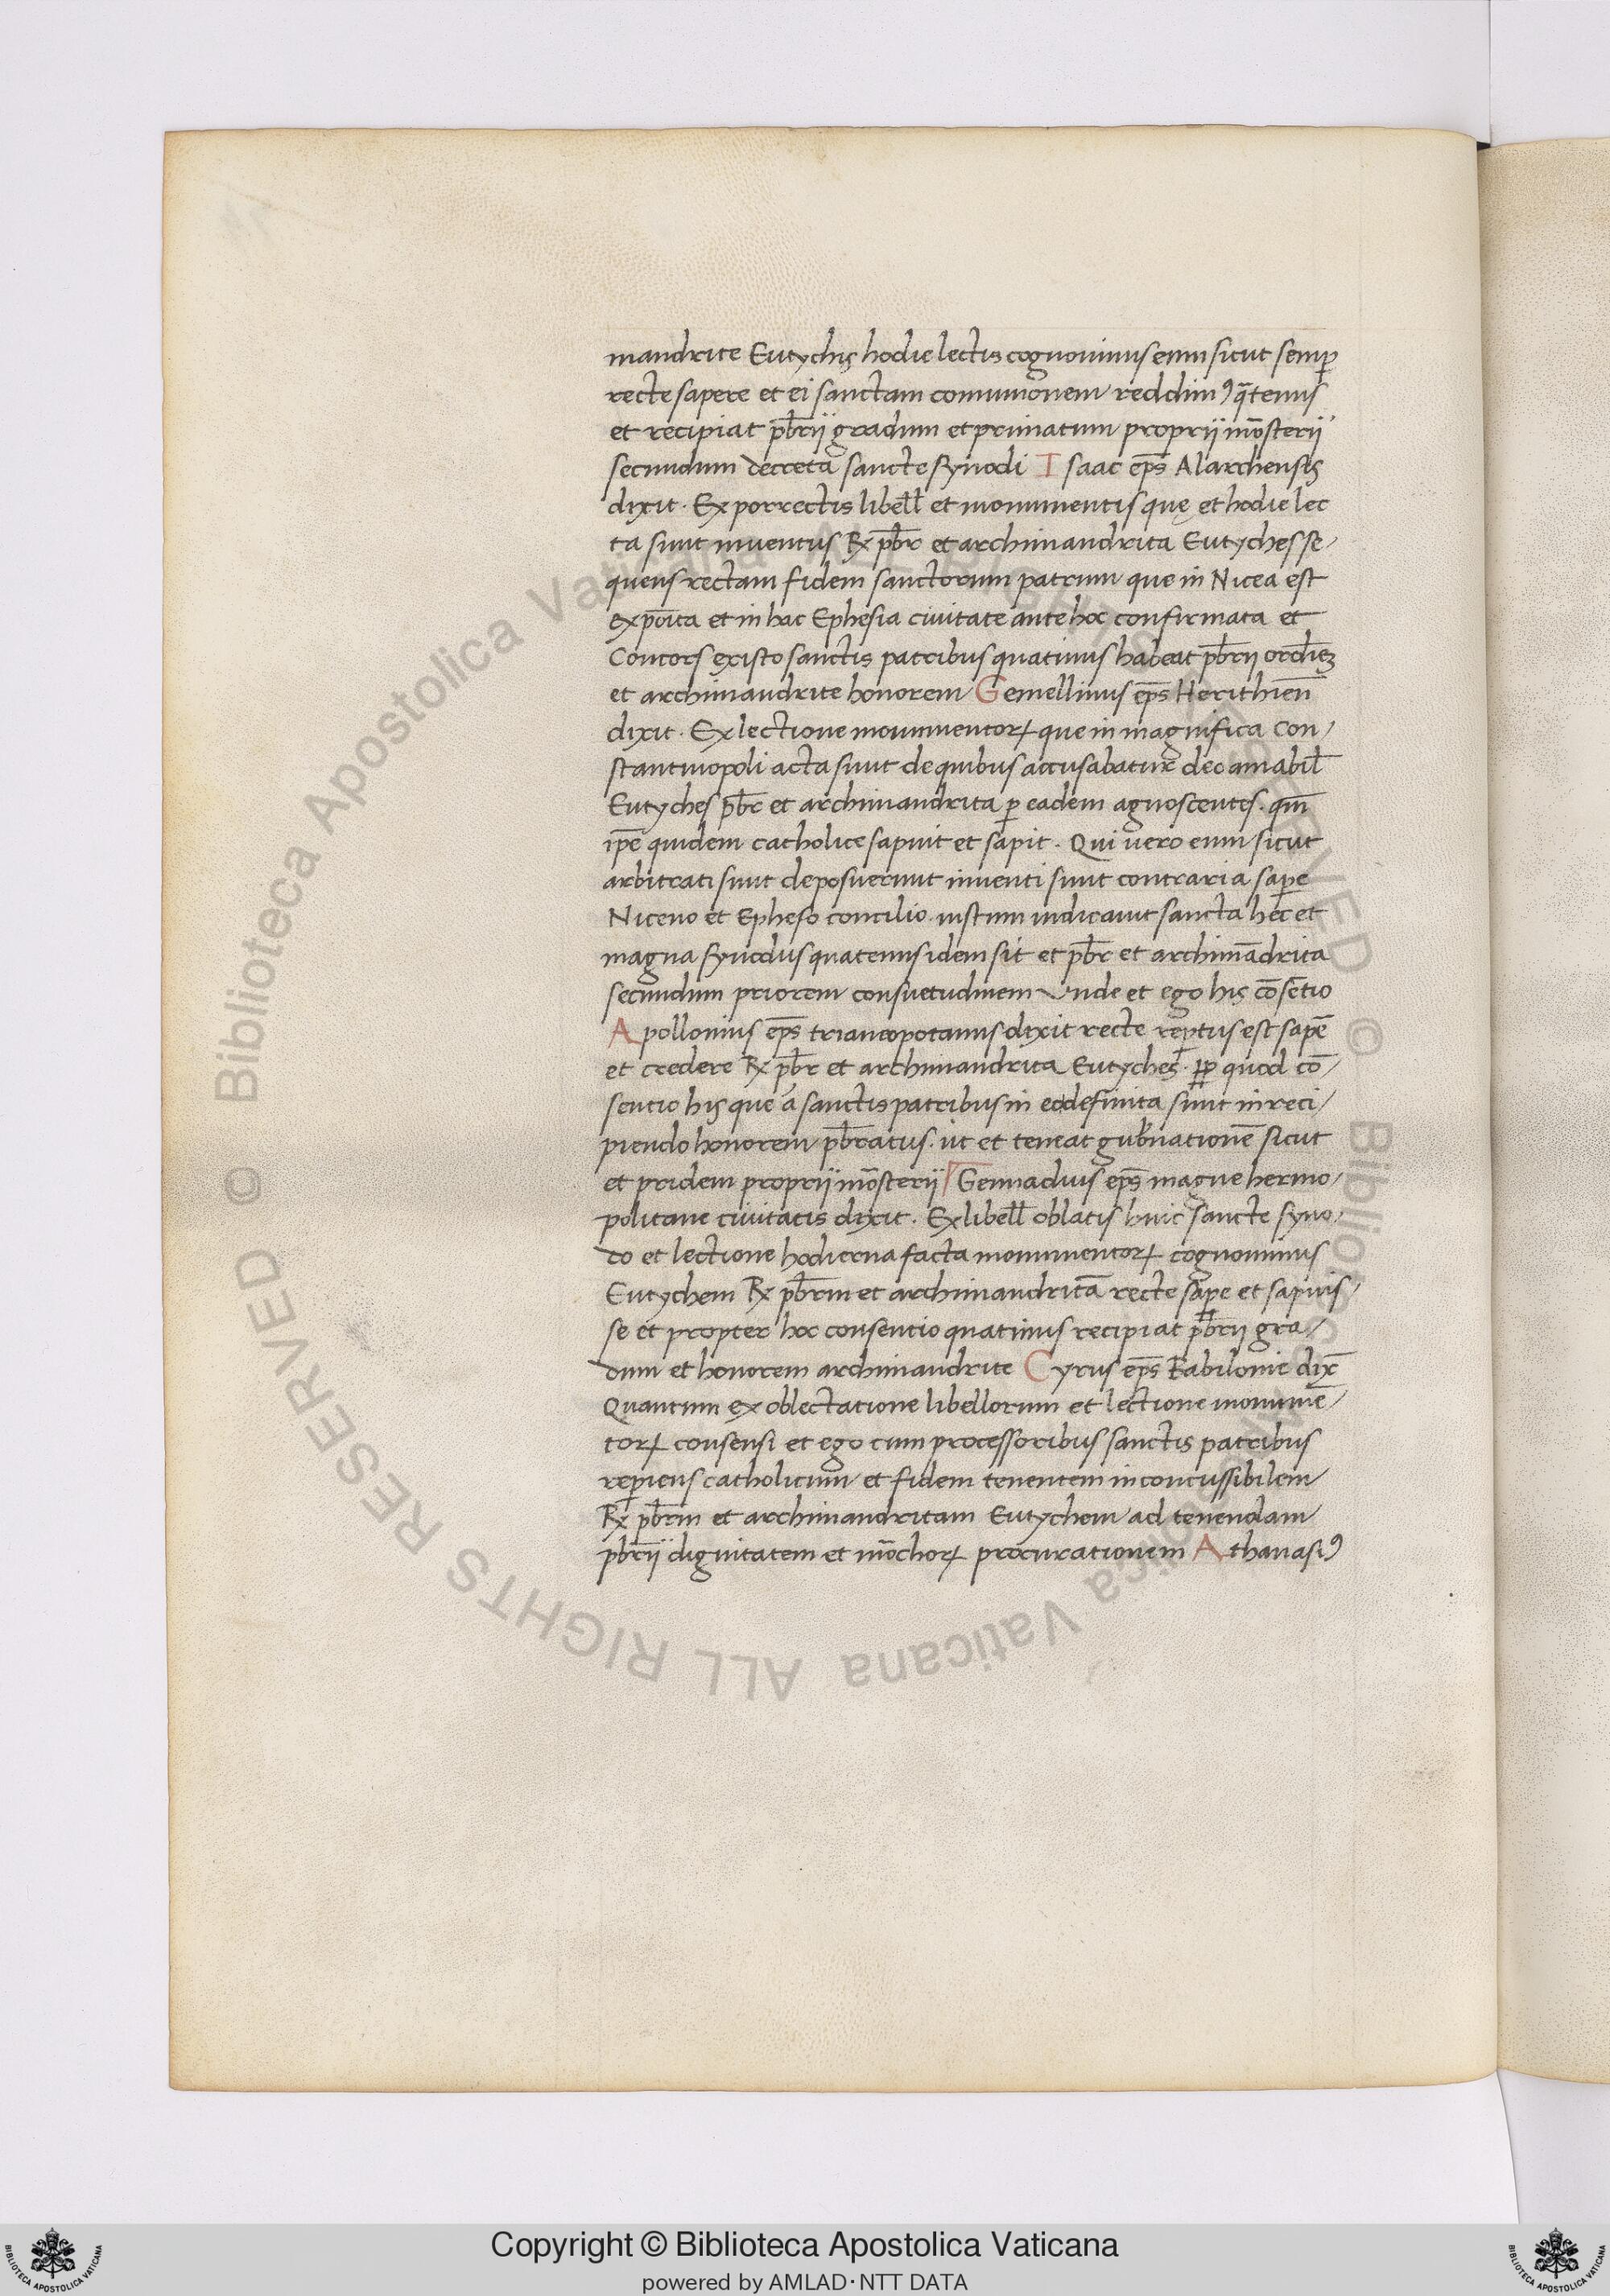 mandrite Eutychis hodie lectis cognovimus eum sicut semp̱
recte sapere et ei sanctam communionem reddimꝰ qᷓtenus
et recipiat pb̄rij gradum et primatum proprij mōsterij
secundum decreta sancte synodi Isaac ep̄s Alarchensis
dixit. Ex porrectis libell̄ et monumentis quę et hodie lec
ta sunt inventus ℞ pb̄r et archimandrita Eutyches se-
quens rectam fidem sanctorum patrum que in Nicea est
expōita et in hac Ephesia civitate ante hoc confirmata et
Concors existo sanctis patribus quatinus habeat pb̄rij ordiēꝫ
et archimandrite honorem Gemellinus ep̄s Herithien̄
dixit. Ex lectione monumentorꝝ que in magnifica Con-
stantinopoli acta sunt de quibus accusabatur deo amabil̄
Eutyches pb̄r et archimandrita ꝑ eadem agnoscentes. qm̄
ip̄e quidem catholice sapuit et sapit. Qui vero eum sicut
arbitrati sunt deposuerunt inventi sunt contraria saꝑe
Niceno et Epheso concilio. iustum iudicavit sancta hec et
magna synodus quatenus idem sit et pb̄r et archimādrita
secundum priorem consuetudinem Unde et ego his cōsētio
Apollonius ep̄s trianeopotanus dixit recte reptus est sapē
et credere ℞ pb̄r et archimandrita Eutyches. ꝓꝑ quod cō-
sentio his que a sanctis patribus in eo definita sunt in reci-
piendo honorem pb̄ratus. ut et teneat gub̄nationē sicut
et pridem proprij mōsterij Gennadius ep̄s magne hermo-
politane civitatis dixit. Ex libell̄ oblatis huic sancte syno-
do et lectione hodierna facta monumentorꝝ cognovimus
Eutychem ℞ pb̄rm et archimandritā recte saꝑe et sapuis-
se et propter hoc consentio quatinus recipiat pb̄rij gra-
dum et honorem archimandrite Cyrus ep̄s Babilonie dix̄
Quantum ex oblectatione libellorum et lectione monumē-
torꝝ consensi et ego cum processoribus sanctis patribus
reꝑiens catholicum et fidem tenentem inconcussibilem
℞ pb̄rm et archimandritam Eutychem ad tenendam
pb̄rij dignitatem et mōchorꝝ procurationem Athanasiꝰ
Copyright © Biblioteca Apostolica Vaticana
powered by AMLAD·NTT DATA
© Biblioteca Apostolica Vaticana ALL RIGHTS RESERVED
© Biblioteca Apostolica Vaticana ALL RIGHTS RESERVED
BIBLIOTECA APOSTOLICA VATICANA
BIBLIOTECA APOSTOLICA VATICANA